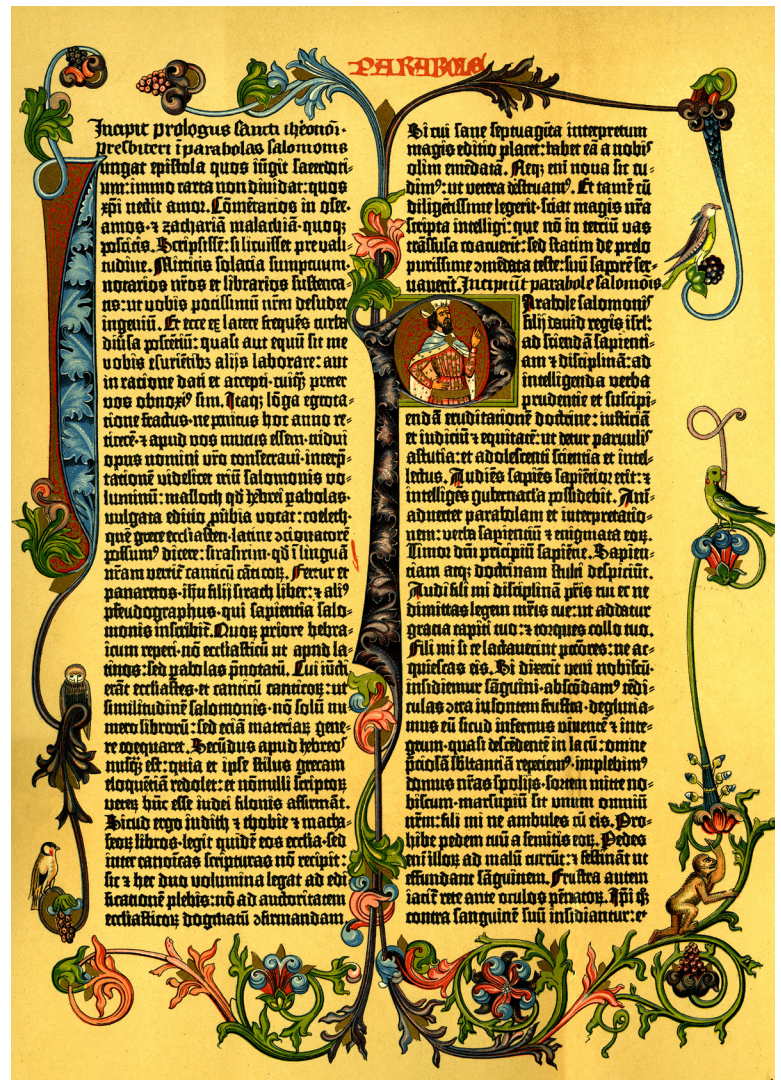 PARABOLE
Incipit prologus sancti iheronimi
presbiteri ī parabolas salomonis
Jungat epistola quos iūgit sacerdoti-
um: immo carta non dividat: quos
xp̄i nectit amor. Cōmētarios in osee.
amos. ⁊ zachariā malachiā. quoqꝫ
poscitis. Scripsissē: si licuisset pre vali-
tudine. Mittitis solacia sumptuum.
notarios nr̄os et librarios sustenta-
ris: ut vobis potissimū nr̄m desudet
ingeniū. Et ecce eꝝ latere frequēs turba
diūsa poscētiū: quasi aut equū sit me
vobis esuriētibꝫ alijs laborare: aut
in ratione dati et accepti. cuiqꝫ preter
vos obnoxiꝰ sim. Itaqꝫ lōga egrota-
tione fractus. ne penitus hoc anno re-
ticerē. ⁊ apud vos mutus essem. tridui
opus nomini vr̄o consecravi. interp̄-
tationē videlicet triū salomonis vo-
luminū: masloth qd̄ hebrei pabolas.
vulgata editio pūbia vocat: coeleth.
quē grece ecclīasten. latine ɔcionatorē
possumꝰ dicere: sirasirim. qd̄ ī linguā
nr̄am vertit̄ canticū cāticoꝝ. Fertur et
panaretos. ih̄u filij sirach liber: ⁊ aliꝰ
pseudographus. qui sapientia salo-
monis inscribit̄. Quoꝝ priorē hebra-
icum reperi. nō ecclīasticū ut apud la-
tinos: sed pabolas p̄notatū. Cui iūcti
erāt ecclīastes. et canticū canticoꝝ: ut
similitudinē salomonis. nō solū nu-
mero librorū: sed eciā materiaꝝ gene-
re coequaret. Secūdus apud hebreoꝰ
nusqꝫ est: quia et ipse stilus grecam
eloquētiā redolet: et nōnulli scriptoꝝ
veteꝝ hūc esse iudei filonis affirmāt.
Sicud ergo iudith ⁊ thobie ⁊ macha-
beoꝝ libros. legit quidē eos ecclīa. sed
inter canoīcas scripturas nō recipit:
sic ⁊ hec duo volumina legat ad edi-
ficationē plebis: nō ad auctoritatem
ecclīasticoꝝ dogmatū ɔfirmandam.
Si cui sane septuagīta interpretum
magis editio placet: habet eā a nobiꝰ
olim emēdatā. Neqꝫ enī nova sic cu-
dimꝰ: ut vetera destruamꝰ. Et tamē cū
diligētissime legerit. sciat magis nr̄a
scripta intelligi: que nō in terciū vas
trāsfusa coacuerīt: sed statim de prelo
purissime ɔmēdata teste: suū saporē ser-
vaverīt. Incipiūt parabole salomōis
Parabole salomonis
filij david regis isrl̄:
ad sciendā sapienti-
am ⁊ disciplinā: ad
intelligenda verba
prudentie et suscipi-
endā eruditationē doctrine: iusticiā
et iudiciū ⁊ equitatē: ut detur parvuliꝰ
astutia: et adolescenti scientia et intel-
lectus. Audiēs sapiēs sapiētior erit: ⁊
intelligēs gubernacula possidebit. Ani-
advertet parabolam et interpretatio-
nem: verba sapientiū ⁊ enigmata eoꝝ.
Timor dn̄i pricipiū sapiētie. Sapien-
ciam atqꝫ doctrinam stulti despiciūt.
Audi fili mi disciplinā pr̄is tui et ne
dimittas legem mr̄is tue: ut addatur
gracia capiti tuo: ⁊ torques collo tuo.
Fili mi si te lactaverint pctōres: ne ac-
quiescas eis. Si dixerīt veni nobiscū-
insidiemur sāguini. abscōdamꝰ tēdi-
culas ɔtra insontem frustra. deglutia-
mus eū sicud infernus viventē ⁊ inte-
grum. quasi descēdentē in lacū: omnē
p̄ciosā sbstantiā repriemꝰ. implebimꝰ
domus nr̄as spolijs. sortem mitte no-
biscum. marsupiū sit unum omniū
nr̄m: fili mi ne ambules cū eis. Pro-
hibe pedem tuū a semitis eoꝝ. Pedes
enī illoꝝ ad malū currūt: ⁊ festināt ut
effundant sāguinem. Frustra autem
iacit̄ rete ante oculos pēnatoꝝ. Ipi qꝫ
contra sanguinē suū insidiantur: et